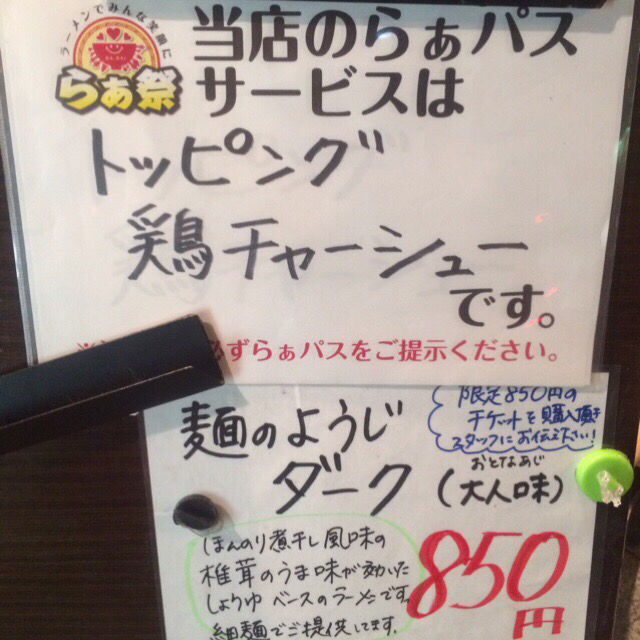 ラーメンでみんな笑顔に
らぁ祭
当店のらぁパス
サービスは
トッピング
鶏チャーシュー
です。
必ずらぁパスをご提示ください。
限定850円の
チケットを購入頂き
スタッフにお伝え下さい!
麺のようじ
おとなあじ
ダーク(大人味)
ほんのり煮干し風味の
椎茸のうま味が効いた
しょうゆベースのラーメンです
細麺でご提供してます。
850
円